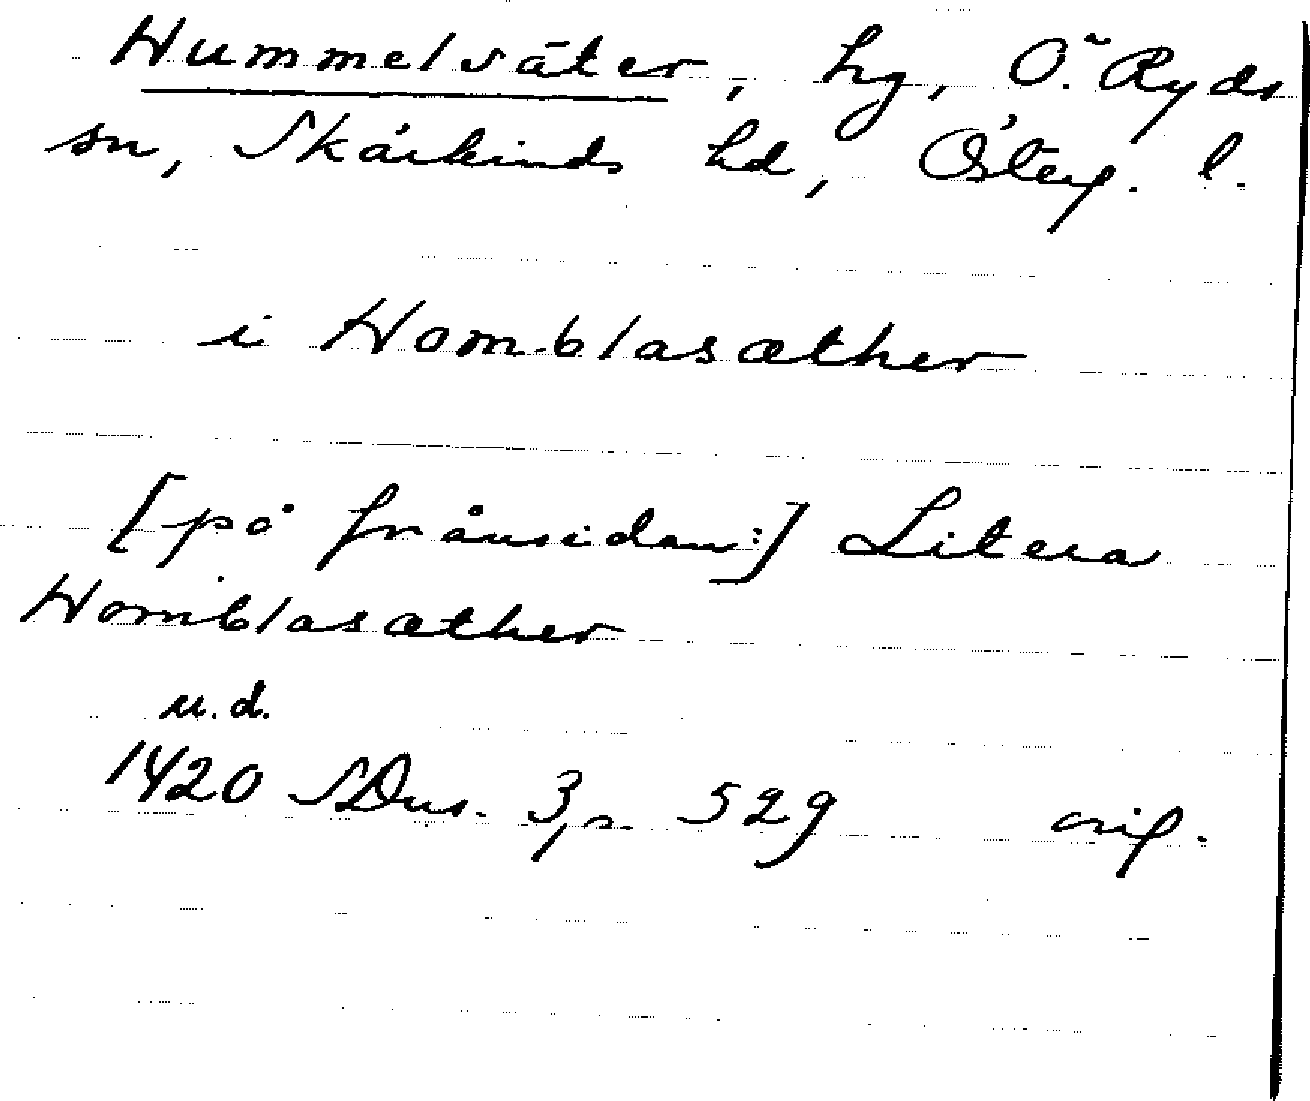 Hummelsäter, hg, Ö. Ryds
sn, Skärkinds hd, Österg. l.
i Homblasæther
[på frånsidan:] Litera
Homblasæther
u.d.
1420 SDns. 3, s. 529 orig.